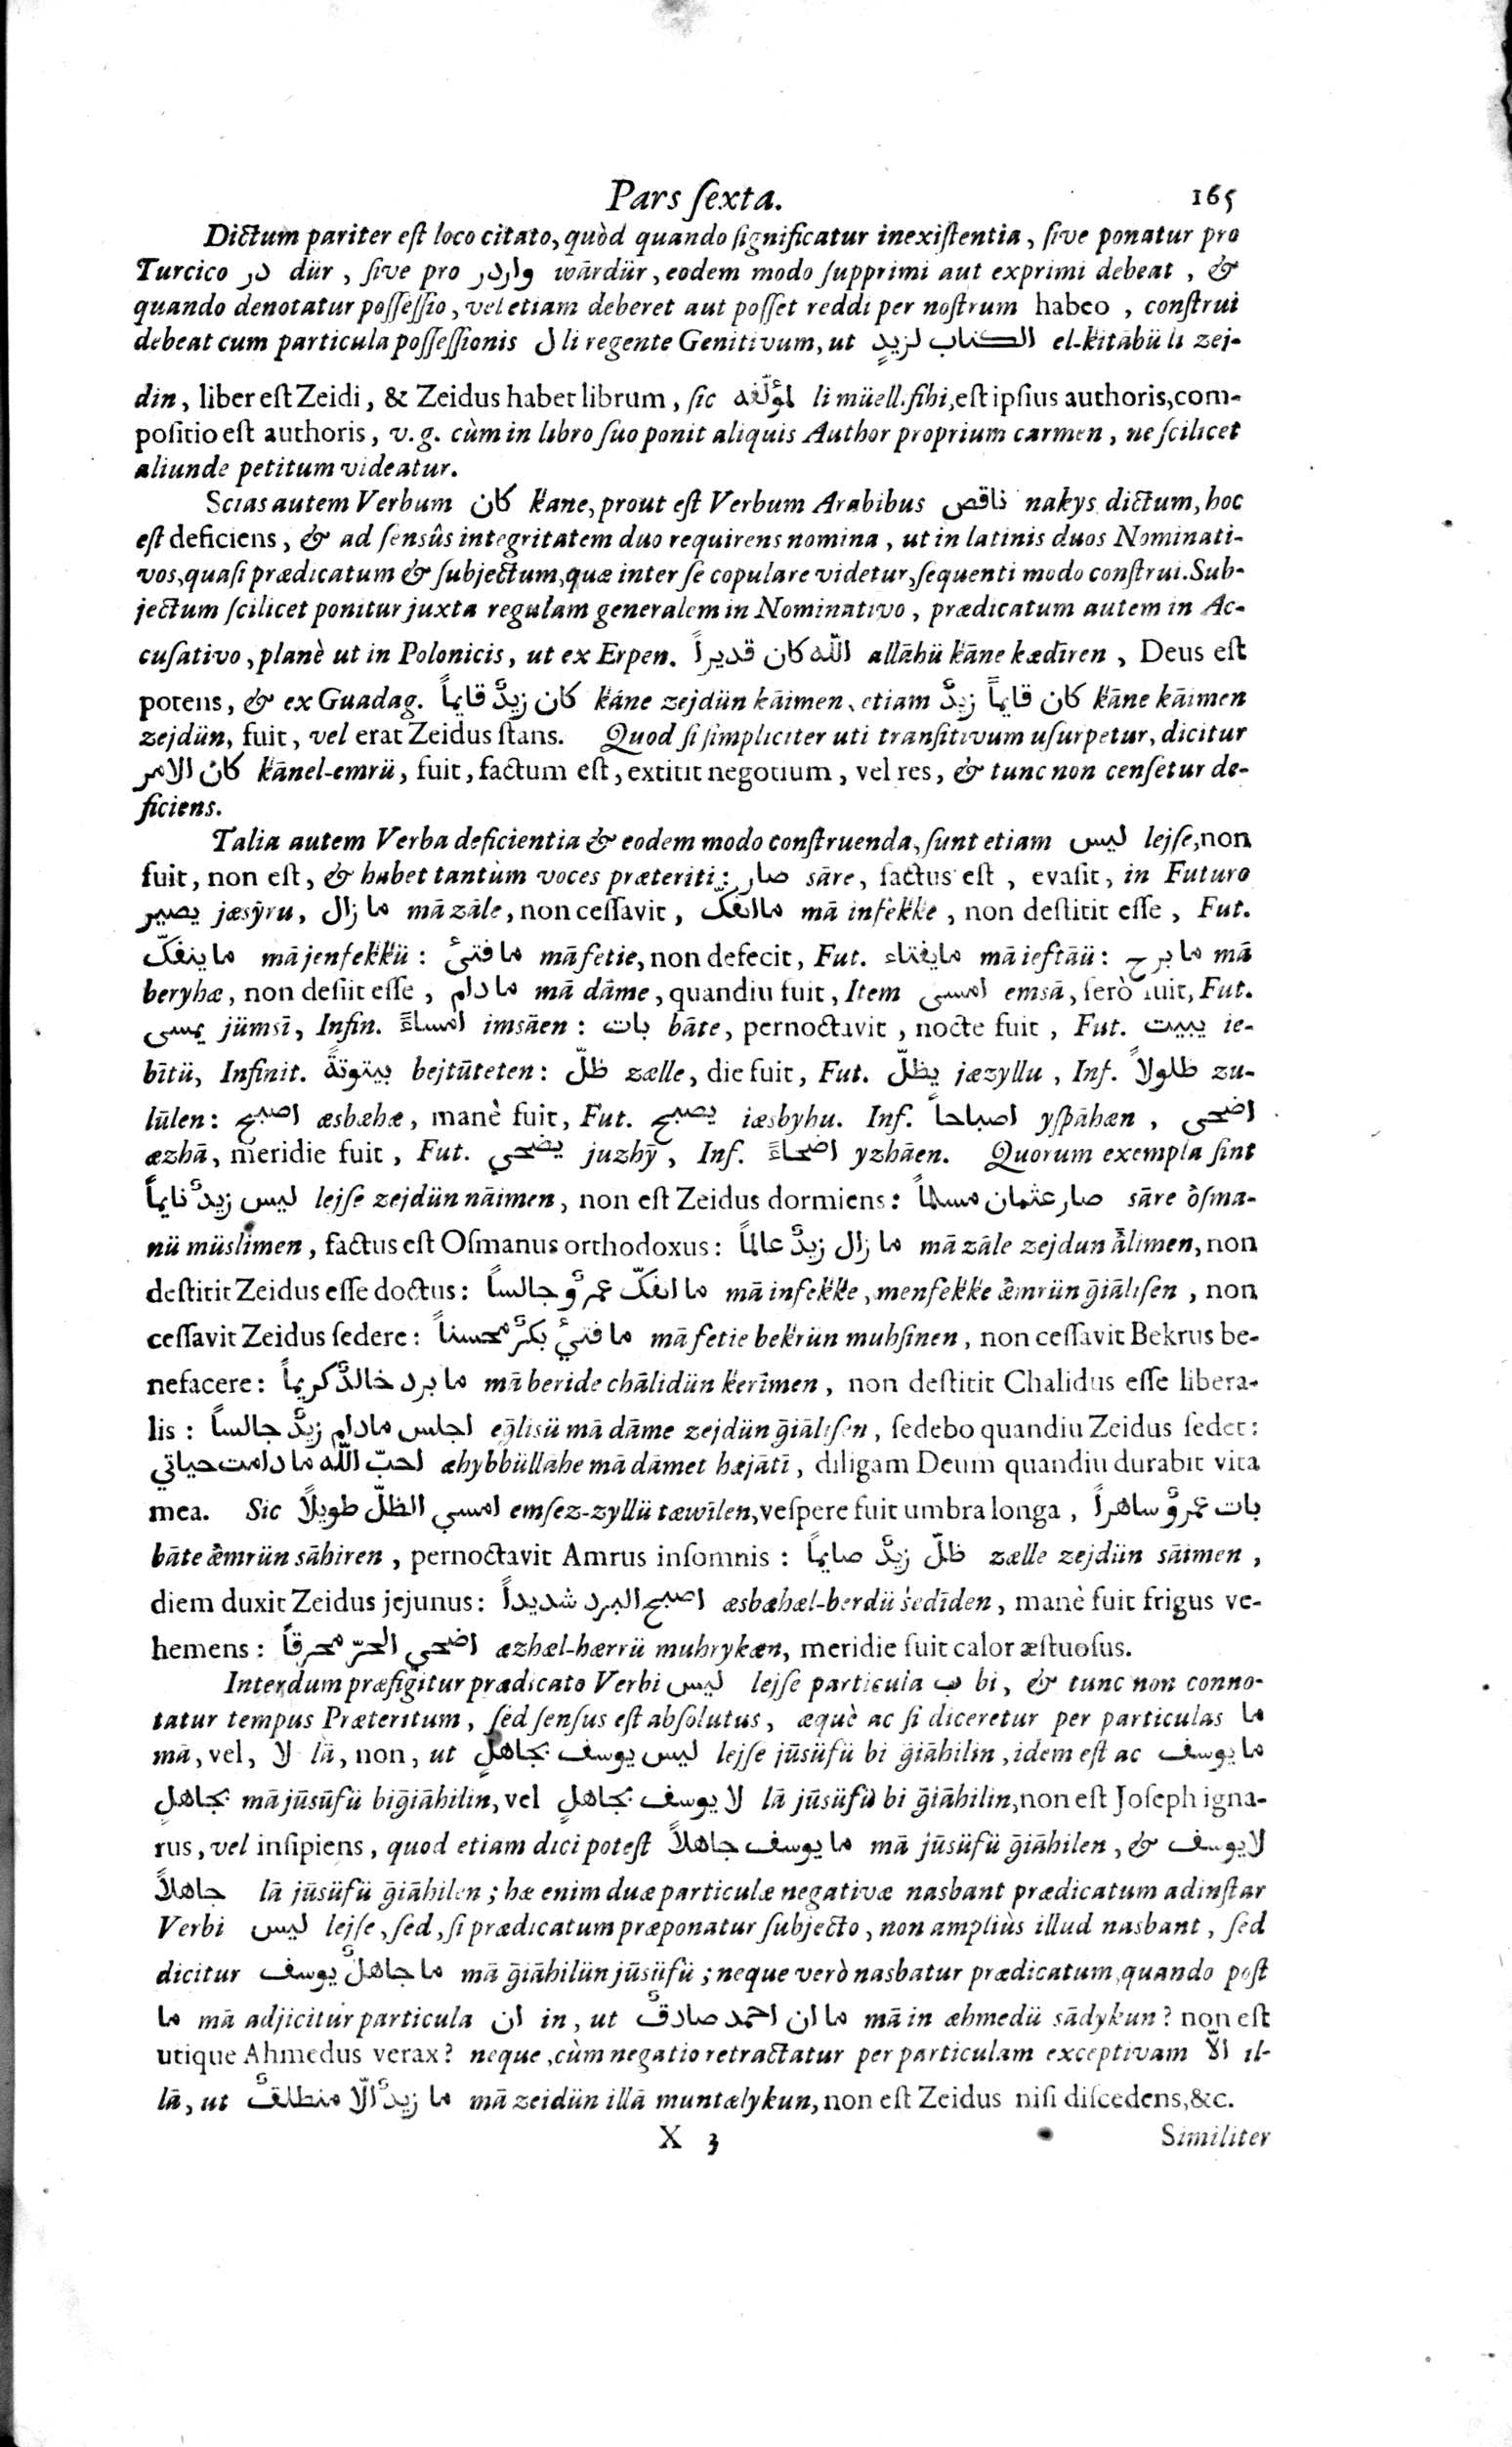 Pars ſexta. 165
Dictum pariter eſt loco citato, quòd quando ſignificatur inexiſtentia, ſive ponatur pro
Turcico در dür, ſive pro واردر wārdür, eodem modo ſupprimi aut exprimi debeat, &
quando denotatur poſſeſſio, vel etiam deberet aut poſſet reddi per noſtrum habeo, conſtrui
debeat cum particula poſſeſſionis ل li regente Genitivum, ut الكتاب لزيدٍ el-kitābü li zej-
din, liber eſt Zeidi, & Zeidus habet librum, ſic لمؤلّفه li müell.fihi, eſt ipſius authoris, com-
poſitio eſt authoris, v.g. cùm in libro ſuo ponit aliquis Author proprium carmen, ne ſcilicet
aliunde petitum videatur.
Scias autem Verbum كان kane, prout eſt Verbum Arabibus ناقص nakys dictum, hoc
eſt deficiens, & ad ſensûs integritatem duo requirens nomina, ut in latinis duos Nominati-
vos, quaſi prædicatum & ſubjectum, quæ inter ſe copulare videtur, ſequenti modo conſtrui. Sub-
jectum ſcilicet ponitur juxta regulam generalem in Nominativo, prædicatum autem in Ac-
cuſativo, planè ut in Polonicis, ut ex Erpen. اللّه كان قديراً allāhü kāne kædīren, Deus eſt
potens, & ex Guadag. كان زيدٌ قايماً káne zejdün kāimen, etiam كان قايماً زيدٌ kāne kāimen
zejdün, fuit, vel erat Zeidus ſtans. Quod ſi ſimpliciter uti tranſitivum uſurpetur, dicitur
كان الامر kānel-emrü, fuit, factum eſt, extitit negotium, vel res, & tunc non cenſetur de-
ficiens.
Talia autem Verba deficientia & eodem modo conſtruenda, ſunt etiam ليس lejſe, non
fuit, non eſt, & habet tantùm voces præteriti: صار sāre, factus eſt, evaſit, in Futuro
يصير jæsȳru, ما زال mā zāle, non ceſſavit, ما انفكّ mā infekke, non deſtitit eſſe, Fut.
ما ينفكّ mā jenfekkü: ما فتئ mā fetie, non defecit, Fut. ما يفتاء mā ieftāü: ما برح mā
beryhæ, non deſiit eſſe, ما دام mā dāme, quandiu fuit, Item امسى emsā, ſerò fuit, Fut.
يمسى jümsī, Infin. امساءً imsāen: بات bāte, pernoctavit, nocte fuit, Fut. يبيت ie-
bītü, Infinit. بيتوتةً bejtūteten: ظلّ zælle, die fuit, Fut. يظلّ jæzyllu, Inf. ظلولاً zu-
lūlen: اصبح æsbæhæ, manè fuit, Fut. يصبح iæsbyhu. Inf. اصباحاً yſpāhæn, اضحى
æzhā, meridie fuit, Fut. يضحي juzhȳ, Inf. اضحاءً yzhāen. Quorum exempla ſint
ليس زيدٌ نايماً lejſe zejdün nāimen, non eſt Zeidus dormiens: صار عثمان مسلماً sāre ösma-
nü müslimen, factus eſt Oſmanus orthodoxus: ما زال زيدٌ عالماً mā zāle zejdun ālimen, non
deſtitit Zeidus eſſe doctus: ما انفكّ عمروٌ جالساً mā infekke, menfekke æmrün ḡiāliſen, non
ceſſavit Zeidus ſedere: ما فتئ بكرٌ محسناً mā fetie bekrün muhſinen, non ceſſavit Bekrus be-
nefacere: ما برد خالدٌ كريماً mā beride chālidün kerīmen, non deſtitit Chalidus eſſe libera-
lis: اجلس مادام زيدٌ جالساً eḡlisü mā dāme zejdün ḡiāliſen, ſedebo quandiu Zeidus ſedet:
احبّ اللّه ما دامت حياتي æhybbüllahe mā dāmet hæjātī, diligam Deum quandiu durabit vita
mea. Sic امسي الظلّ طويلًا emſez-zyllü tæwīlen, veſpere fuit umbra longa, بات عمروٌ ساهراً
bāte æmrün sāhiren, pernoctavit Amrus inſomnis: ظلّ زيدٌ صايماً zælle zejdün sāimen,
diem duxit Zeidus jejunus: اصبح البرد شديداً æsbæhæl-berdü ṡedīden, manè fuit frigus ve-
hemens: اضحي الحرّ محرقاً æzhæl-hærrü muhrykæn, meridie fuit calor æſtuoſus.
Interdum præfigitur prædicato Verbi ليس lejſe particula ب bi, & tunc non conno-
tatur tempus Præteritum, ſed ſenſus eſt abſolutus, æquè ac ſi diceretur per particulas ما
mā, vel, لا lā, non, ut ليس يوسف بجاهلٍ lejſe jūsüfü bi ḡiāhilin, idem eſt ac ما يوسف
بجاهلٍ mā jūsūfü biḡiāhilin, vel لا يوسف بجاهلٍ lā jūsüfü bi ḡiāhilin, non eſt Joſeph igna-
rus, vel inſipiens, quod etiam dici poteſt ما يوسف جاهلاً mā jūsüfü ḡiāhilen, & لا يوسف
جاهلاً lā jūsüfü ḡiāhilen; hæ enim duæ particulæ negativæ nasbant prædicatum ad inſtar
Verbi ليس lejſe, ſed, ſi prædicatum præponatur ſubjecto, non ampliùs illud nasbant, ſed
dicitur ما جاهلٌ يوسف mā ḡiāhilün jūsüfü; neque verò nasbatur prædicatum, quando poſt
ما mā adjicitur particula ان in, ut ما ان احمد صادقٌ mā in æhmedü sādykun? non eſt
utique Ahmedus verax? neque, cùm negatio retractatur per particulam exceptivam الّا il-
lā, ut ما زيدٌ الّا منطلقٌ mā zeidün illā muntælykun, non eſt Zeidus niſi diſcedens, &c.
X 3 Similiter